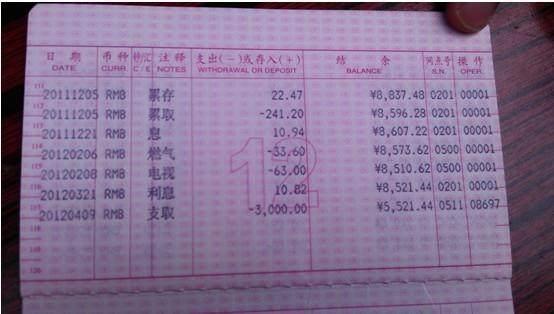 日 期 币种 钞/汇 注释 支出(-)或存入(+) 结 余 网点号 操作
DATE CURR. C/E NOTES WITHDRAWAL OR DEPOSIT BALANCE S.N. OPER.
111 20111205 RMB 累存 22.47 ¥8,837.48 0201 00001
112 20111205 RMB 累取 -241.20 ¥8,596.28 0201 00001
20111221 RMB 息 10.94 ¥8,607.22 0201 00001
20120206 RMB 燃气 -33.60 ¥8,573.62 0500 00001
20120208 RMB 电视 -63.00 ¥8,510.62 0500 00001
20120321 RMB 利息 10.82 ¥8,521.44 0201 00001
20120409 RMB 支取 -3,000.00 ¥5,521.44 0511 08697
118
119
120
12